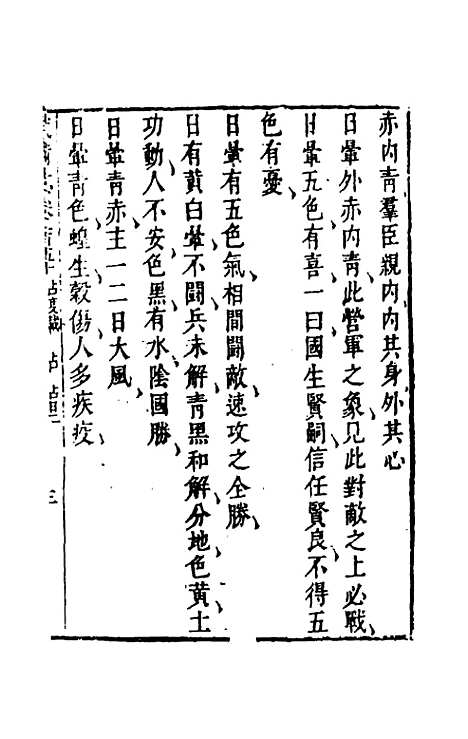 赤內青羣臣親內內其身外其心
日暈外赤內青此營軍之象見此對敵之上必戰
日暈五色有喜一曰國生賢嗣信任賢良不得五
色有憂
日暈有五色氣相間鬭敵速攻之全勝
日有黃白暈不鬭兵未解青黑和解分地色黃土
功動人不安色黑有水陰國勝
日暈青赤主一二日大風
日暈青色蝗生穀傷人多疾疫
占度載 占 占日 三